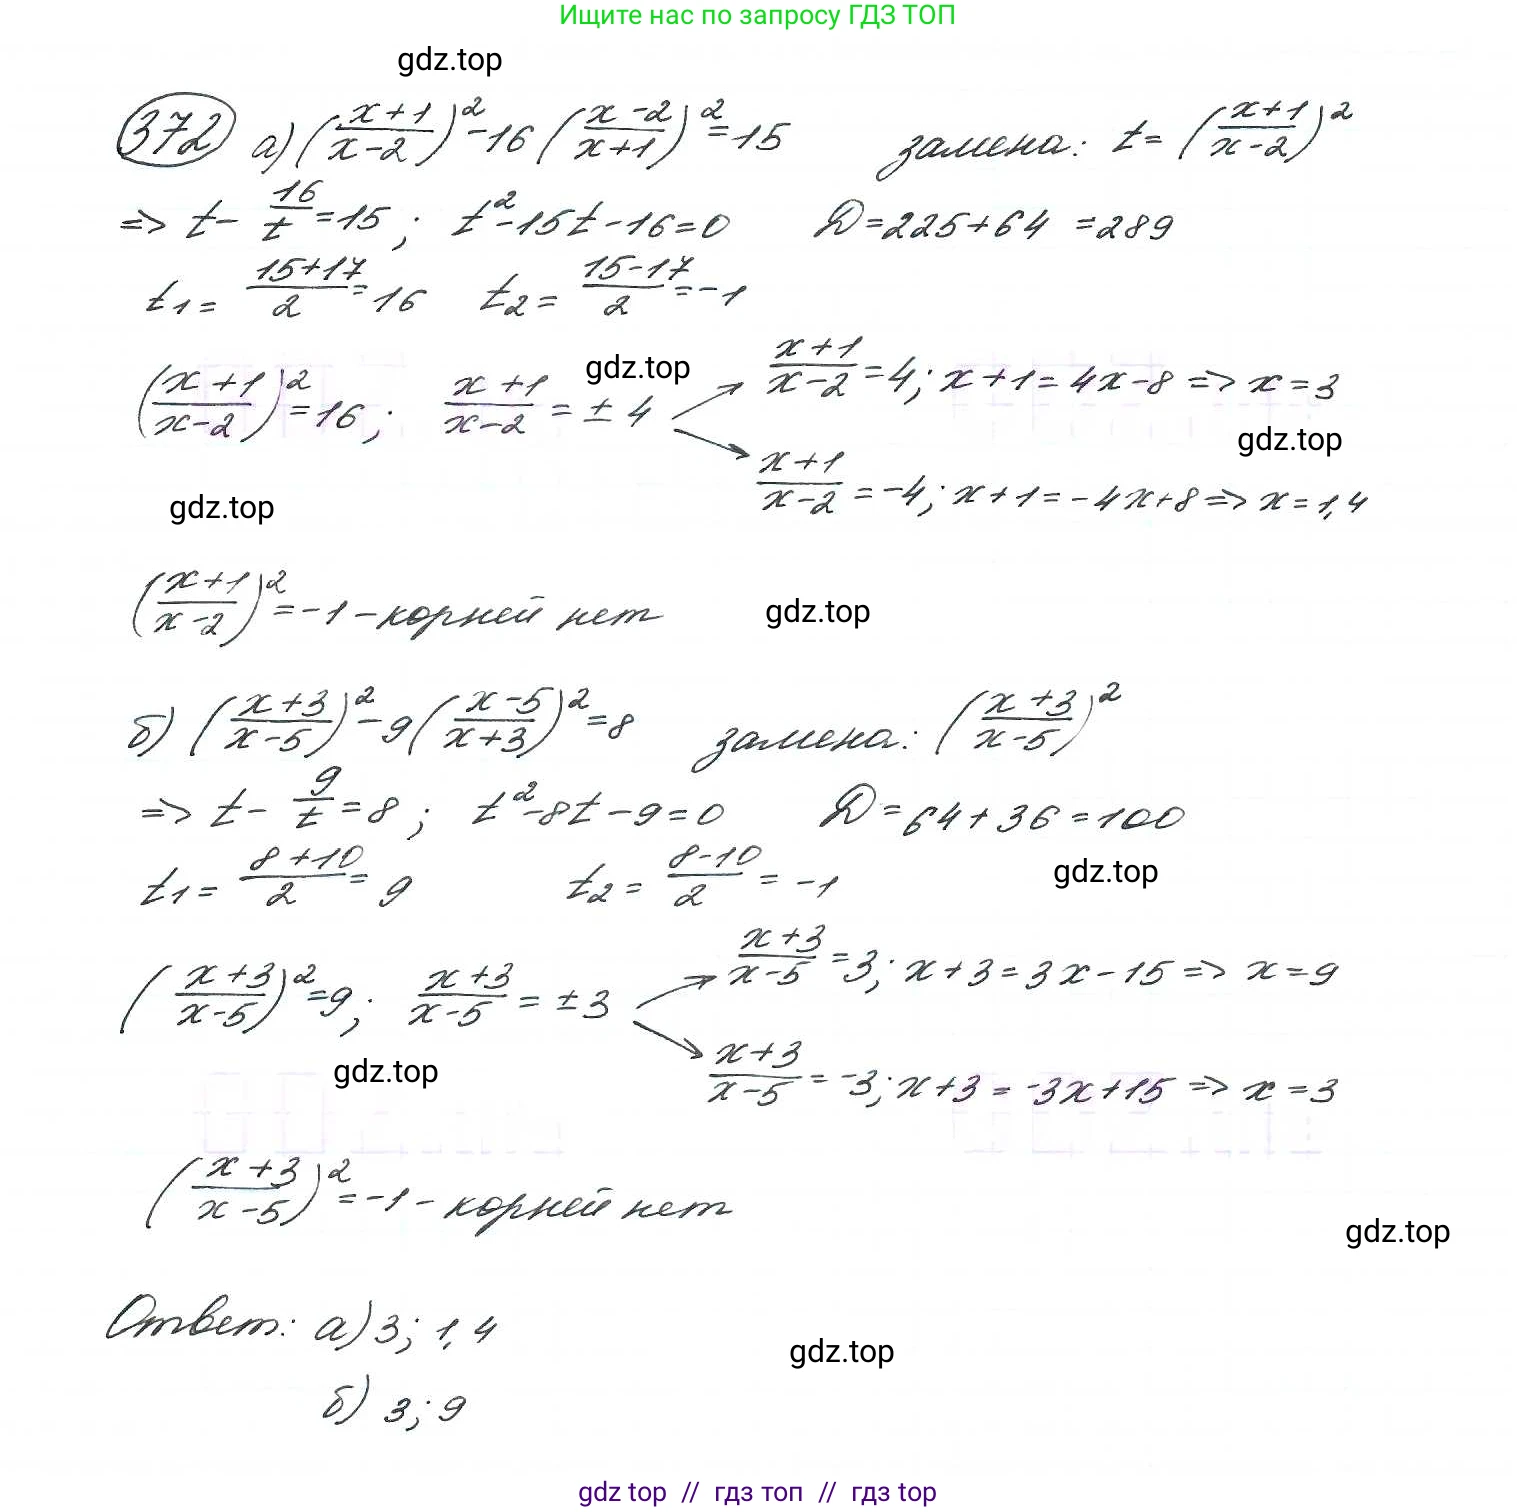 Ищите нас по запросу ГДЗ ТОП
gdz.top
372 а) ((x+1)/(x-2))² - 16 ((x-2)/(x+1))² = 15 замена: t = ((x+1)/(x-2))²
=> t - 16/t = 15; t² - 15t - 16 = 0 D = 225 + 64 = 289
t1 = (15+17)/2 = 16 t2 = (15-17)/2 = -1
gdz.top
((x+1)/(x-2))² = 16; (x+1)/(x-2) = ± 4 (x+1)/(x-2) = 4; x+1 = 4x-8 => x = 3
gdz.top
(x+1)/(x-2) = -4; x+1 = -4x+8 => x = 1,4
gdz.top
((x+1)/(x-2))² = -1 - корней нет
gdz.top
б) ((x+3)/(x-5))² - 9 ((x-5)/(x+3))² = 8 замена: ((x+3)/(x-5))²
=> t - 9/t = 8; t² - 8t - 9 = 0 D = 64 + 36 = 100
t1 = (8+10)/2 = 9 t2 = (8-10)/2 = -1
gdz.top
((x+3)/(x-5))² = 9; (x+3)/(x-5) = ± 3 (x+3)/(x-5) = 3; x+3 = 3x-15 => x = 9
(x+3)/(x-5) = -3; x+3 = -3x+15 => x = 3
gdz.top
((x+3)/(x-5))² = -1 - корней нет
gdz.top
Ответ: а) 3; 1,4
gdz.top
б) 3; 9
gdz top // гдз топ // gdz top